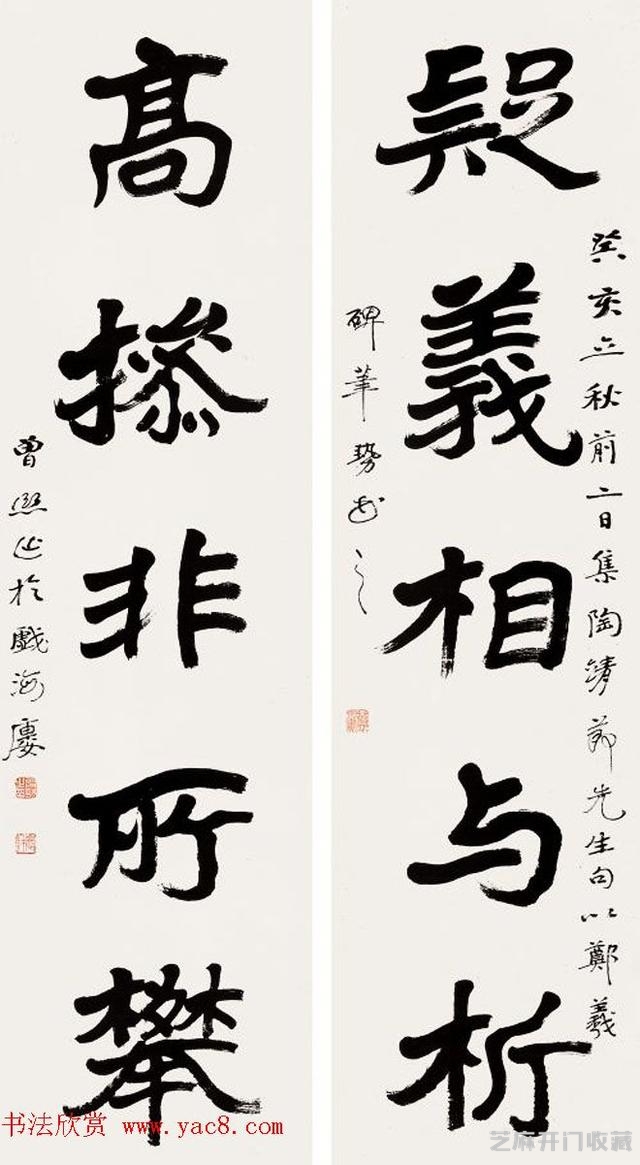 疑義相与析
癸亥立秋前二日集陶靖節先生句以鄭羲
碑筆勢書之
高操非所攀
曾熙作於戲海廔
书法欣赏 www.yac8.com
芝麻开门收藏